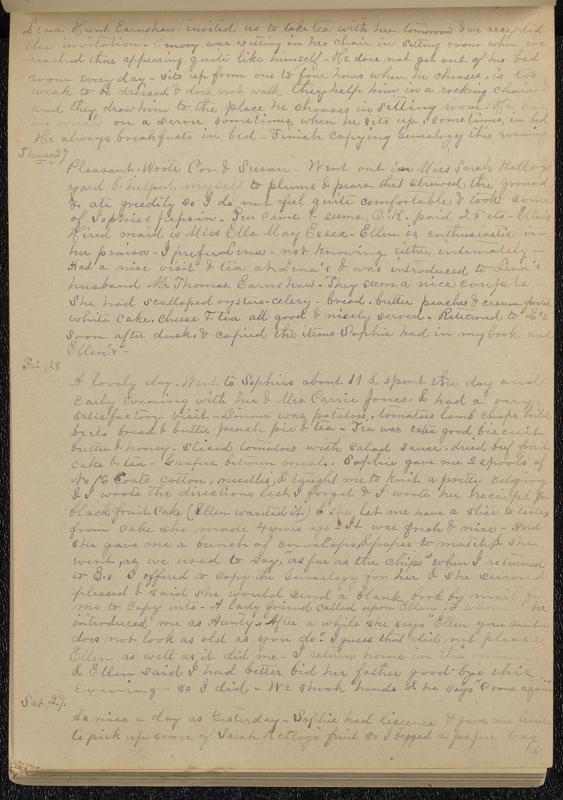 Lena Hunt Earnshaw invited us to take tea with her tomorrow & we accepted
the invitation - Emory was sitting in his chair in sitting room when we
reached there appearing quite like himself. He does not get out of his bed
room every day - sits up from one to four hours when he chooses, is too
weak to be dressed & does not walk they help him in a rocking chair &
and they draw him to the place he chooses in sitting room. He has
his meals on a server sometimes when he sits up, sometimes in bed
He always breakfasts in bed - Finish copying Genealogy this evening
Thurs 27
Pleasant. Wrote Con & Susan - Went out in Miss Sarah Kellogg
yard & helped myself to plums & pears that strewed the ground
& ate greedily so I do not feel quite comfortable & took some
of Sophie's pepsin. Pen came & seems O.K. paid 25 cts - Ellen's
hired maid is Miss Ella May Essex - Ellen is enthusiastic in
her praises - I prefer Lena - not knowing either intimately -
Had a nice visit & tea at Lena's & was introduced to Lena's
husband Mr Thomas Earnshaw. They seem a nice couple -
She had scalloped oysters - celery - bread - butter peaches & cream
white cake. Cheese & tea all good & nicely served - Returned to E's
soon after dusk. & copied the items Sophie had in my book and
Ellen's -
Fri 28
A lovely day - Went to Sophies about 11 & spent the day and
early evening with her & Mrs Carrie Jones. & had a very
satisfactory visit - Dinner was potatoes, tomatoes lamb chops
bread & butter peach pie & tea - Tea was good biscuit
butter & honey - sliced tomatoes with salad sauce, dried beef fruit
cake & tea - Grapes between meals. Sophie gave me 2 spools of
No 16 Coats cotton, needles, & taught me to knit a pretty edging
& I wrote the directions lest I forget & I wrote her receipt for
black fruit cake (Ellen wanted it) & she let me have a slice to
from cake she made 4 years ago - It was fresh & nice - And
she gave me a bunch of envelops, & paper to match, & she
went, as we used to say, "as far as the chips" when I returned
to E.s I offered to copy the Genealogy for her & she seemed
pleased & said she would send a blank book by mail for
me to copy into - A lady friend called upon Ellen to whom he
introduced me as Aunty - After a while she says "Ellen your auntie
does not look as old as you do." I guess that did not please
Ellen as well as it did me - I return home in the
& Ellen said I had better bid her father good-bye this
evening - so I did - We shook hands & he says "Come again"
Sat 29.
As nice a day as Yesterday - Sophie had liscence & gave me leave
to pick up some of Sarah Kelloggs fruit so I begged a paper bag